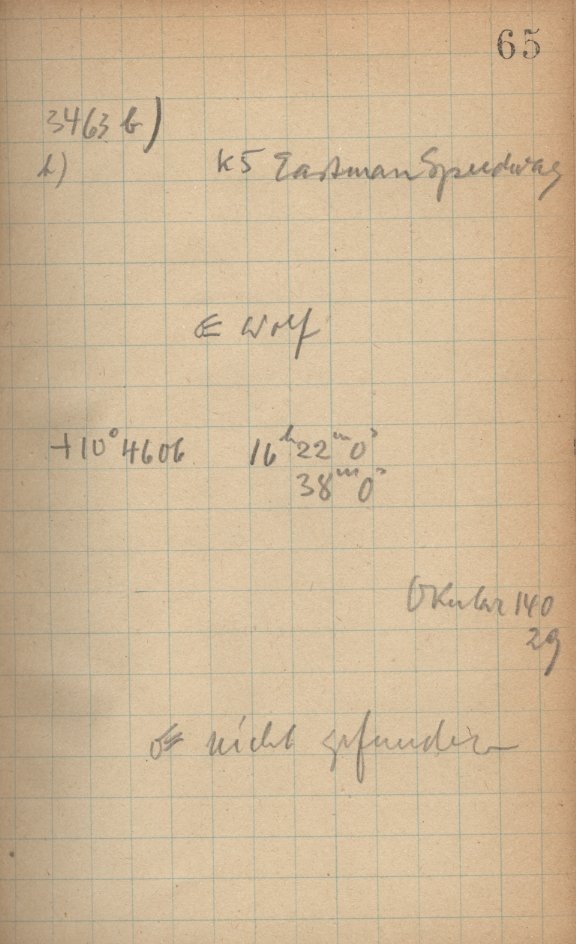 65
3463 b)
b) K5 Eastman Speedway
☄ Wolf
+10°4606 16ʰ22ᵐ0ˢ
38ᵐ0ˢ
Okular 140
29
☄ nicht gefunden